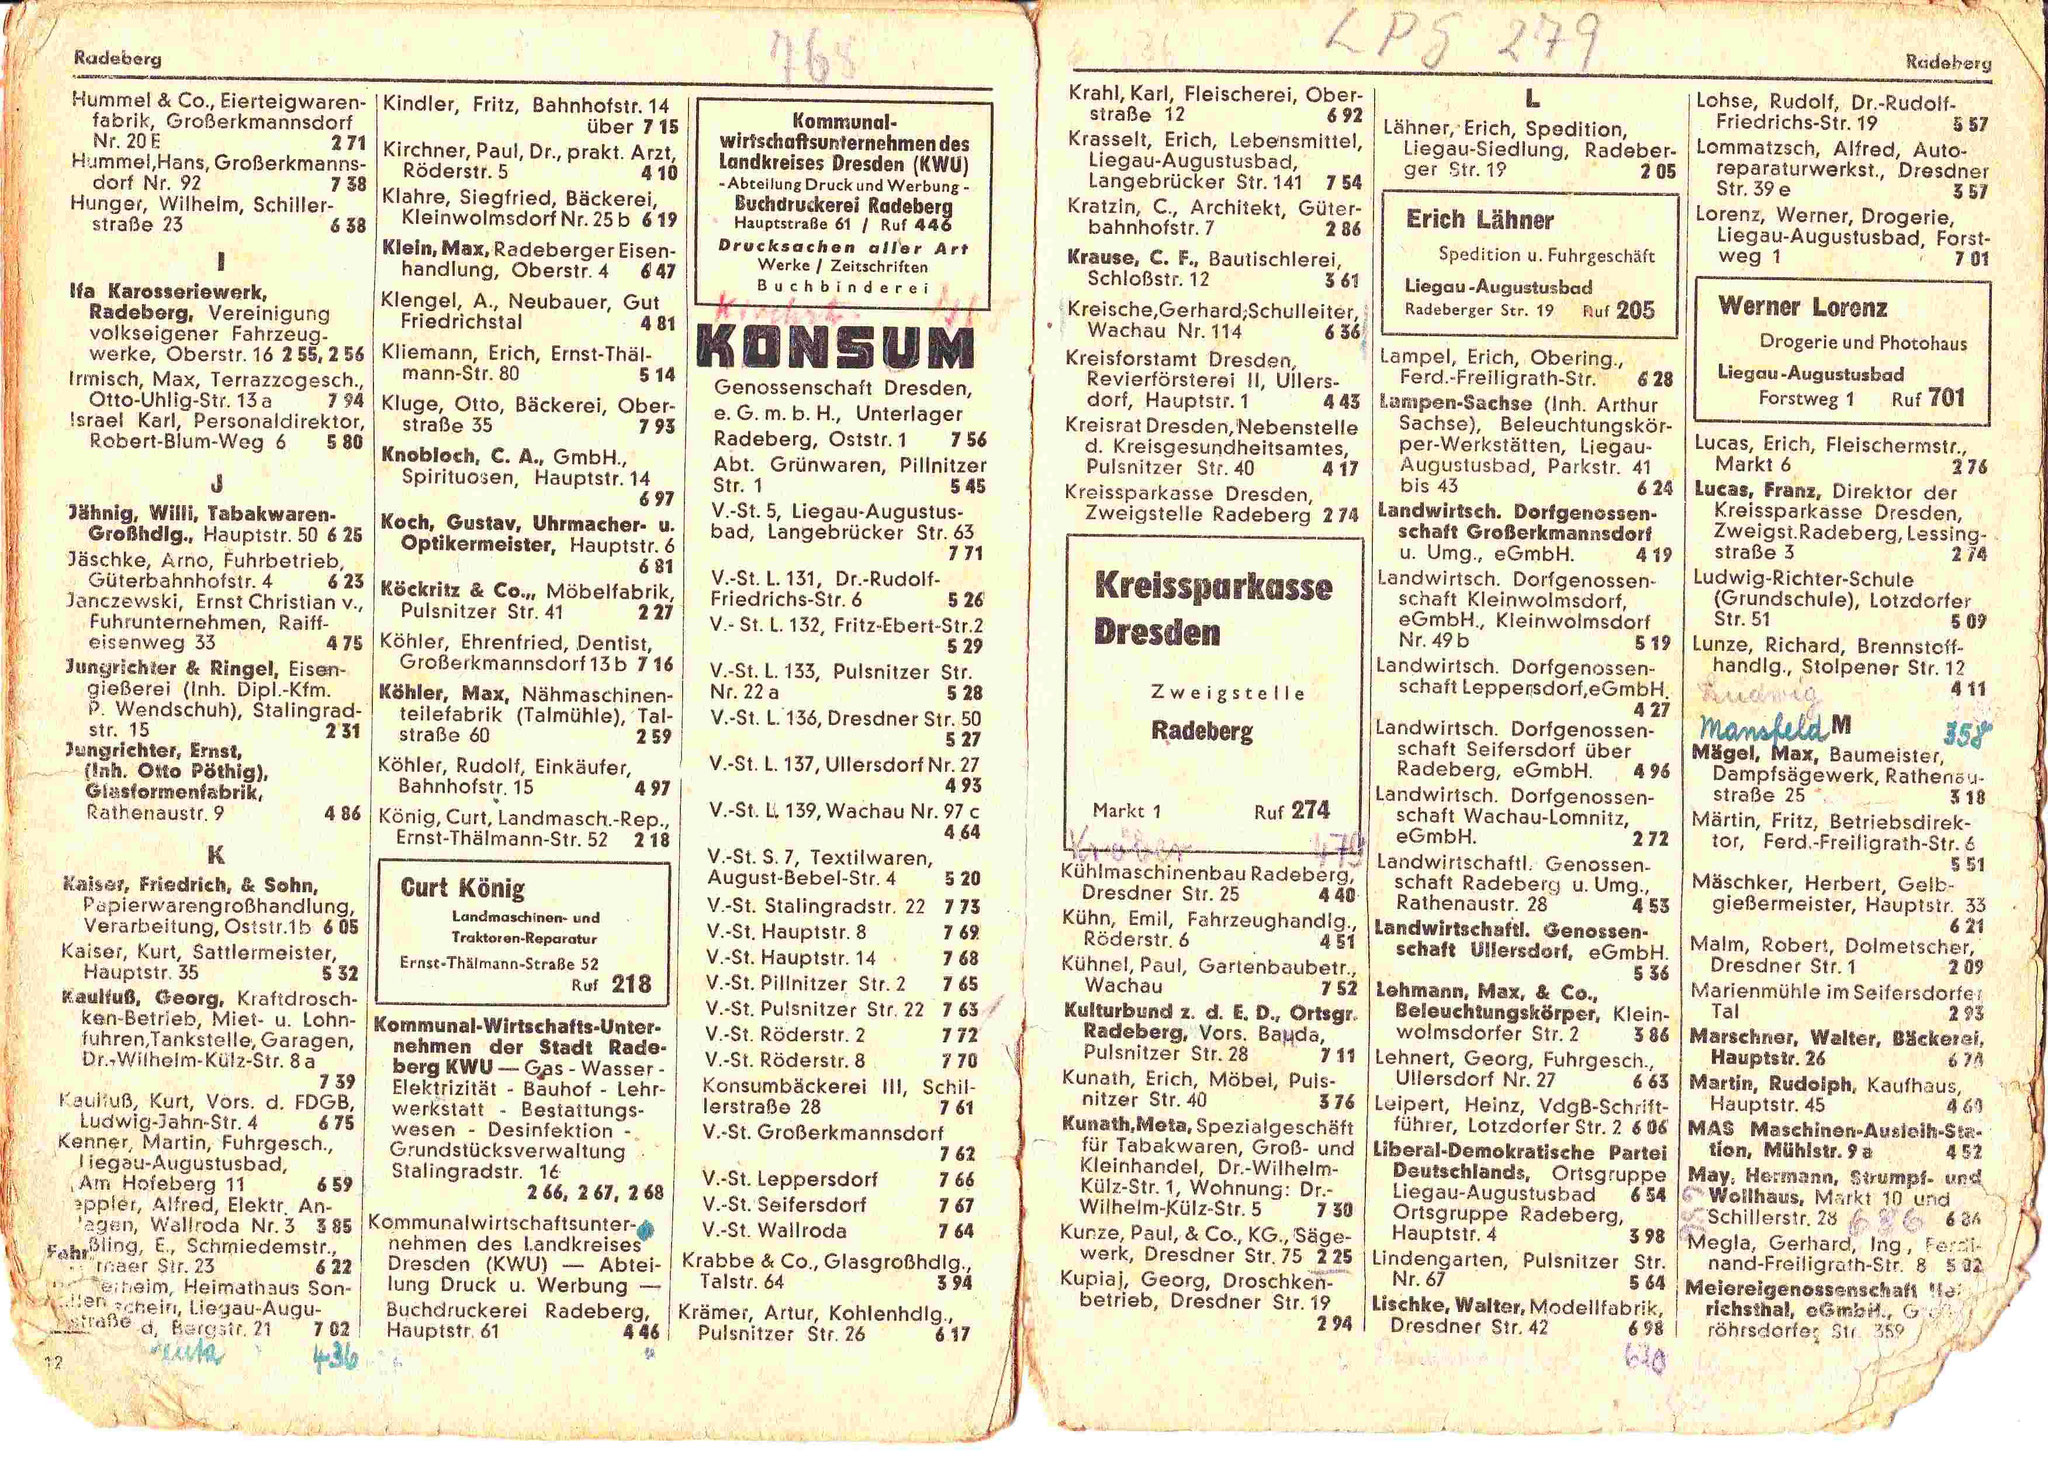 Radeberg
768
Hummel & Co., Eierteigwaren-
fabrik, Großerkmannsdorf
Nr. 20 E 2 71
Hummel, Hans, Großerkmanns-
dorf Nr. 92 7 38
Hunger, Wilhelm, Schiller-
straße 23 6 38
I
Ifa Karosseriewerk,
Radeberg, Vereinigung
volkseigener Fahrzeug-
werke, Oberstr. 16 2 55, 2 56
Irmisch, Max, Terrazzogesch.,
Otto-Uhlig-Str. 13 a 7 94
Israel Karl, Personaldirektor,
Robert-Blum-Weg 6 5 80
J
Jähnig, Willi, Tabakwaren-
Großhdlg., Hauptstr. 50 6 25
Jäschke, Arno, Fuhrbetrieb,
Güterbahnhofstr. 4 6 23
Janczewski, Ernst Christian v.,
Fuhrunternehmen, Raiff-
eisenweg 33 4 75
Jungrichter & Ringel, Eisen-
gießerei (Inh. Dipl.-Kfm.
P. Wendschuh), Stalingrad-
str. 15 2 31
Jungrichter, Ernst,
(Inh. Otto Pöthig),
Glasformenfabrik,
Rathenaustr. 9 4 86
K
Kaiser, Friedrich, & Sohn,
Papierwarengroßhandlung,
Verarbeitung, Oststr. 1b 6 05
Kaiser, Kurt, Sattlermeister,
Hauptstr. 35 5 32
Kaulfuß, Georg, Kraftdrosch-
ken-Betrieb, Miet- u. Lohn-
fuhren, Tankstelle, Garagen,
Dr.-Wilhelm-Külz-Str. 8 a
7 39
Kaulfuß, Kurt, Vors. d. FDGB,
Ludwig-Jahn-Str. 4 6 75
Kenner, Martin, Fuhrgesch.,
Liegau-Augustusbad,
Am Hofeberg 11 6 59
eppler, Alfred, Elektr. An-
lagen, Wallroda Nr. 3 3 85
ßling, E., Schmiedemstr.,
rnaer Str. 23 6 22
erheim, Heimathaus Son-
schein, Liegau-Augu-
d, Bergstr. 21 7 02
436
12
Kindler, Fritz, Bahnhofstr. 14
über 7 15
Kirchner, Paul, Dr., prakt. Arzt,
Röderstr. 5 4 10
Klahre, Siegfried, Bäckerei,
Kleinwolmsdorf Nr. 25 b 6 19
Klein, Max, Radeberger Eisen-
handlung, Oberstr. 4 6 47
Klengel, A., Neubauer, Gut
Friedrichstal 4 81
Kliemann, Erich, Ernst-Thäl-
mann-Str. 80 5 14
Kluge, Otto, Bäckerei, Ober-
straße 35 7 93
Knobloch, C. A., GmbH.,
Spirituosen, Hauptstr. 14
6 97
Koch, Gustav, Uhrmacher- u.
Optikermeister, Hauptstr. 6
6 81
Köckritz & Co., Möbelfabrik,
Pulsnitzer Str. 41 2 27
Köhler, Ehrenfried, Dentist,
Großerkmannsdorf 13 b 7 16
Köhler, Max, Nähmaschinen-
teilefabrik (Talmühle), Tal-
straße 60 2 59
Köhler, Rudolf, Einkäufer,
Bahnhofstr. 15 4 97
König, Curt, Landmasch.-Rep.,
Ernst-Thälmann-Str. 52 2 18
Curt König
Landmaschinen- und
Traktoren-Reparatur
Ernst-Thälmann-Straße 52
Ruf 218
Kommunal-Wirtschafts-Unter-
nehmen der Stadt Rade-
berg KWU — Gas - Wasser -
Elektrizität - Bauhof - Lehr-
werkstatt - Bestattungs-
wesen - Desinfektion -
Grundstücksverwaltung
Stalingradstr. 16
2 66, 2 67, 2 68
Kommunalwirtschaftsunter-
nehmen des Landkreises
Dresden (KWU) — Abtei-
lung Druck u. Werbung —
Buchdruckerei Radeberg,
Hauptstr. 61 4 46
Kommunal-
wirtschaftsunternehmen des
Landkreises Dresden (KWU)
- Abteilung Druck und Werbung -
Buchdruckerei Radeberg
Hauptstraße 61 / Ruf 446
Drucksachen aller Art
Werke / Zeitschriften
Buchbinderei
KONSUM
Genossenschaft Dresden,
e. G. m. b. H., Unterlager
Radeberg, Oststr. 1 7 56
Abt. Grünwaren, Pillnitzer
Str. 1 5 45
V.-St. 5, Liegau-Augustus-
bad, Langebrücker Str. 63
7 71
V.-St. L. 131, Dr.-Rudolf-
Friedrichs-Str. 6 5 26
V.- St. L. 132, Fritz-Ebert-Str. 2
5 29
V.-St. L. 133, Pulsnitzer Str.
Nr. 22 a 5 28
V.-St. L. 136, Dresdner Str. 50
5 27
V.-St. L. 137, Ullersdorf Nr. 27
4 93
V.-St. L. 139, Wachau Nr. 97 c
4 64
V.-St. S. 7, Textilwaren,
August-Bebel-Str. 4 5 20
V.-St. Stalingradstr. 22 7 73
V.-St. Hauptstr. 8 7 69
V.-St. Hauptstr. 14 7 68
V.-St. Pillnitzer Str. 2 7 65
V.-St. Pulsnitzer Str. 22 7 63
V.-St. Röderstr. 2 7 72
V.-St. Röderstr. 8 7 70
Konsumbäckerei III, Schil-
lerstraße 28 7 61
V.-St. Großerkmannsdorf
7 62
V.-St. Leppersdorf 7 66
V.-St. Seifersdorf 7 67
V.-St. Wallroda 7 64
Krabbe & Co., Glasgroßhdlg.,
Talstr. 64 3 94
Krämer, Artur, Kohlenhdlg.,
Pulsnitzer Str. 26 6 17
LPG 279
Radeberg
Krahl, Karl, Fleischerei, Ober-
straße 12 6 92
Krasselt, Erich, Lebensmittel,
Liegau-Augustusbad,
Langebrücker Str. 141 7 54
Kratzin, C., Architekt, Güter-
bahnhofstr. 7 2 86
Krause, C. F., Bautischlerei,
Schloßstr. 12 3 61
Kreische, Gerhard, Schulleiter,
Wachau Nr. 114 6 36
Kreisforstamt Dresden,
Revierförsterei II, Ullers-
dorf, Hauptstr. 1 4 43
Kreisrat Dresden, Nebenstelle
d. Kreisgesundheitsamtes,
Pulsnitzer Str. 40 4 17
Kreissparkasse Dresden,
Zweigstelle Radeberg 2 74
Kreissparkasse
Dresden
Zweigstelle
Radeberg
Markt 1 Ruf 274
Kröber 479
Kühlmaschinenbau Radeberg,
Dresdner Str. 25 4 40
Kühn, Emil, Fahrzeughandlg.,
Röderstr. 6 4 51
Kühnel, Paul, Gartenbaubetr.,
Wachau 7 52
Kulturbund z. d. E. D., Ortsgr.
Radeberg, Vors. Bauda,
Pulsnitzer Str. 28 7 11
Kunath, Erich, Möbel, Puls-
nitzer Str. 40 3 76
Kunath, Meta, Spezialgeschäft
für Tabakwaren, Groß- und
Kleinhandel, Dr.-Wilhelm-
Külz-Str. 1, Wohnung: Dr.-
Wilhelm-Külz-Str. 5 7 30
Kunze, Paul, & Co., KG., Säge-
werk, Dresdner Str. 75 2 25
Kupiaj, Georg, Droschken-
betrieb, Dresdner Str. 19
2 94
L
Lähner, Erich, Spedition,
Liegau-Siedlung, Radeber-
ger Str. 19 2 05
Erich Lähner
Spedition u. Fuhrgeschäft
Liegau-Augustusbad
Radeberger Str. 19 Ruf 205
Lampel, Erich, Obering.,
Ferd.-Freiligrath-Str. 6 28
Lampen-Sachse (Inh. Arthur
Sachse), Beleuchtungskör-
per-Werkstätten, Liegau-
Augustusbad, Parkstr. 41
bis 43 6 24
Landwirtsch. Dorfgenossen-
schaft Großerkmannsdorf
u. Umg., eGmbH. 4 19
Landwirtsch. Dorfgenossen-
schaft Kleinwolmsdorf,
eGmbH., Kleinwolmsdorf
Nr. 49 b 5 19
Landwirtsch. Dorfgenossen-
schaft Leppersdorf, eGmbH.
4 27
Landwirtsch. Dorfgenossen-
schaft Seifersdorf über
Radeberg, eGmbH. 4 96
Landwirtsch. Dorfgenossen-
schaft Wachau-Lomnitz,
eGmbH. 2 72
Landwirtschaftl. Genossen-
schaft Radeberg u. Umg.,
Rathenaustr. 28 4 53
Landwirtschaftl. Genossen-
schaft Ullersdorf, eGmbH.
5 36
Lehmann, Max, & Co.,
Beleuchtungskörper, Klein-
wolmsdorfer Str. 2 3 86
Lehnert, Georg, Fuhrgesch.,
Ullersdorf Nr. 27 6 63
Leipert, Heinz, VdgB-Schrift-
führer, Lotzdorfer Str. 2 6 06
Liberal-Demokratische Partei
Deutschlands, Ortsgruppe
Liegau-Augustusbad 6 54
Ortsgruppe Radeberg,
Hauptstr. 4 3 98
Lindengarten, Pulsnitzer Str.
Nr. 67 5 64
Lischke, Walter, Modellfabrik,
Dresdner Str. 42 6 98
630
Lohse, Rudolf, Dr.-Rudolf-
Friedrichs-Str. 19 5 57
Lommatzsch, Alfred, Auto-
reparaturwerkst., Dresdner
Str. 39 e 3 57
Lorenz, Werner, Drogerie,
Liegau-Augustusbad, Forst-
weg 1 7 01
Werner Lorenz
Drogerie und Photohaus
Liegau-Augustusbad
Forstweg 1 Ruf 701
Lucas, Erich, Fleischermstr.,
Markt 6 2 76
Lucas, Franz, Direktor der
Kreissparkasse Dresden,
Zweigst. Radeberg, Lessing-
straße 3 2 74
Ludwig-Richter-Schule
(Grundschule), Lotzdorfer
Str. 51 5 09
Lunze, Richard, Brennstoff-
handlg., Stolpener Str. 12
4 11
Ludwig
Mansfeld M 358
Mägel, Max, Baumeister,
Dampfsägewerk, Rathenau-
straße 25 3 18
Märtin, Fritz, Betriebsdirek-
tor, Ferd.-Freiligrath-Str. 6
5 51
Mäschker, Herbert, Gelb-
gießermeister, Hauptstr. 33
6 21
Malm, Robert, Dolmetscher,
Dresdner Str. 1 2 09
Marienmühle im Seifersdorfer
Tal 2 93
Marschner, Walter, Bäckerei,
Hauptstr. 26
Martin, Rudolph, Kaufhaus,
Hauptstr. 45 4 60
MAS Maschinen-Ausleih-Sta-
tion, Mühlstr. 9 a 4 52
May, Hermann, Strumpf- und
Wollhaus, Markt 10 und
Schillerstr. 28 686 6 86
Megla, Gerhard, Ing., Ferdi-
nand-Freiligrath-Str. 8 5 02
Meiereigenossenschaft
richsthal, eGmbH.,
röhrsdorfer Str. 359